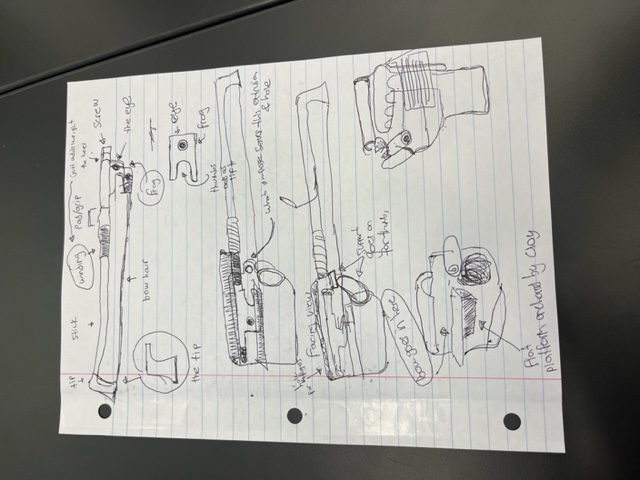 tip
stick
winding
pad/grip
the heel
screw
the eye
bow hair
frog
the tip
eye
frog
thumbs
whats purpose serves this extrusion
& hole
Facing view
support
goes on
for thumb,
Bow goes in here
Flat
platform anchord by clay